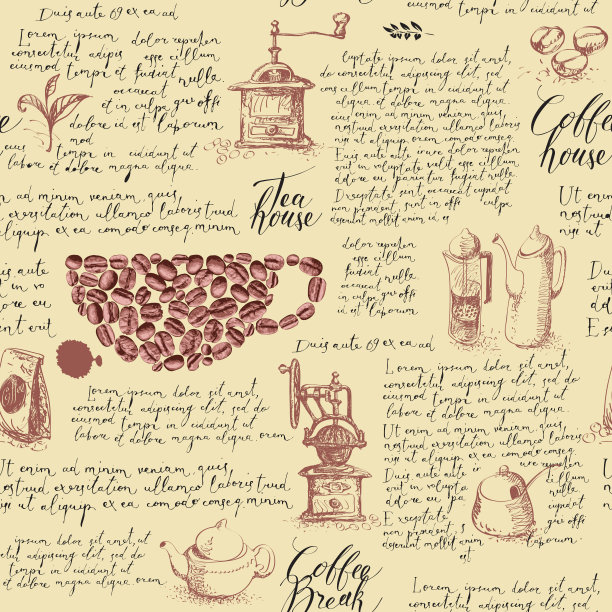 Duis aute 69 ex ea ad
Lorem ipsum
consectetur adipis
eiusmod tempi et fugiat
occaecat
et in culpa qui offi
dolor reprehen
cillum dolore eu
nulle
dolore id est laborum
mod
tempi in cididunt ut
labore et dolore magna aliqua
luptate ipsum dolor sit amet,
do consectetur adipiscing elit, sed
eiusmod tempi in cididunt ut
labore et dolore magna aliqua.
Ut enim ad minim veniam, quis,
nostrud exorsitation ullamco laboris
nisi ut aliquip ex ea commodo conseq.
Duis aute
erit in voluptate velit esse cillum
dolore eu pariatur fugiat nulle
Excepteur sint occaecat cupidat
non proident, sunt in offi culpa
deserunt mollit anim id es
Coffee
house
Tea
house
en ad minim veniam, quis,
exorsitation ullamco laboris trud
aliquip ex ea commodo conseq. minim
Ut en
nostrud
nisi ut
dolor reprehen
cillum dolore eu
fugiat nulle
occaecat
cupidat
qui offi
laborum
is aute
erit in
dolore eu
erit
Duis aute 69 ex ea ad
Lorem ipsum dolor sit amet,
consectetur adipiscing elit, sed
eiusmod tempi in cididunt ut
labore et dolore magna aliqua. orem
Lorem ipsum dolor sit amet,
consectetur adipiscing elit, sed
eiusmod tempi in cididunt ut
labore et dolore magna aliqua.
Ut enim ad minim veniam, quis,
nostrud exorsitation ullamco laboris
nisi ut aliquip ex ea commodo conseq.
Duis aute
erit in volupta
dolore eu pa
Excepteur
non proident, s
deserunt mollit anim id
est
ure reprehen
cillum
nulle
cupidat
qui offi
laborum
Ut enim ad minim veniam, quis,
nostrud exorsitation ullamco laboris trud
nisi ut aliquip ex ea commodo conseq. minim
ipsum dolor sit amet, ut
consectetur adipiscing elit, sed
eiusmod tempi in cididunt ut
labore et dolore magna aliqua
Coffee
Break
Lorem ipsum dolor sit amet,
consectetur adipiscing elit, sed